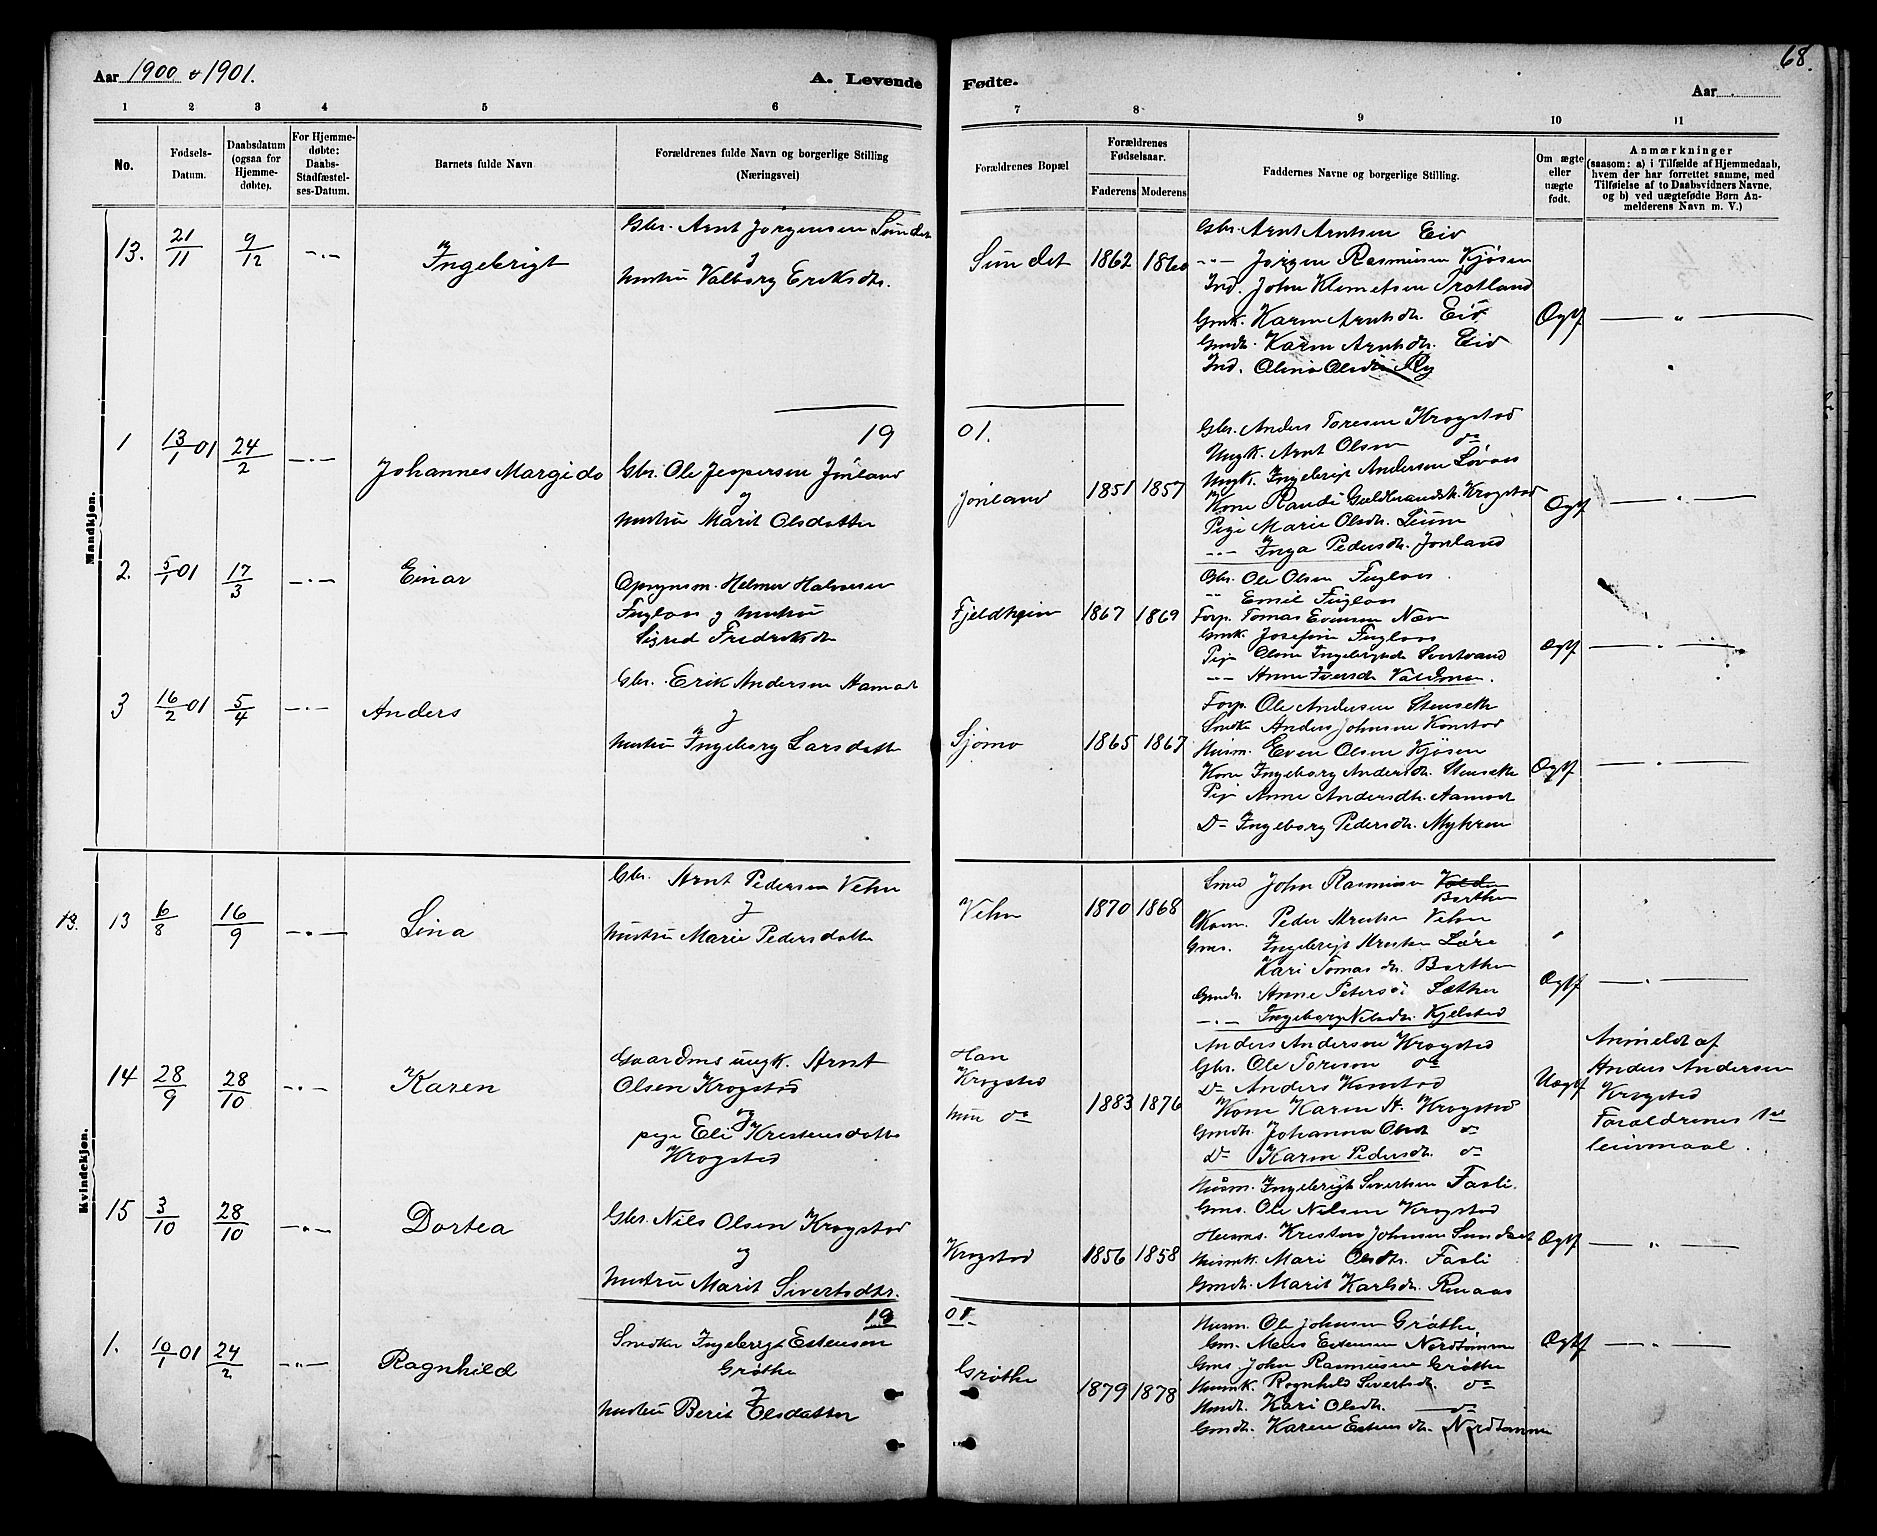 Aar 1900 & 1901.
A. Levende
Fødte.
68.
Aar
1 2 3 4 5 6 7 8 9 10 11
No.
Fødsels-
Datum.
Daabsdatum
(ogsaa for
Hjemme-
døbte).
For Hjemme-
døbte:
Daabs-
Stadfæstel-
ses-Datum.
Barnets fulde Navn
Forældrenes fulde Navn og borgerlige Stilling
(Næringsvei)
Forældrenes Bopæl
Forældrenes
Fødselsaar.
Faderens
Moderens
Faddernes Navne og borgerlige Stilling.
Om ægte
eller
uægte
født.
Anmærkninger
(saasom: a) i Tilfælde af Hjemmedaab,
hvem der har forrettet samme, med
Tilføielse af to Daabsvidners Navne,
og b) ved uægtefødte Børn An-
melderens Navn m. V.)
Mandkjøn.
13. 21/11 9/12 Ingebrigt
Gbr. Arnt Jørgensen Sundet
og
hustru Valborg Eriksdtr.
Sundet 1862 1860
Gbr. Arnt Arntsen Eid
Jørgen Rasmussen Kjøsen
Ind. John Klemetsen Trotland
Gmk. Karen Arntsdtr. Eid
Gmdtr. Karen Arntsdtr. Eid
Ind. Olina Olsdtr Ry
Ægtf
1901.
1 13/1 01 24/2 Johannes Margido
Gbr. Ole Jespersen Jønland
og
hustru Marit Olsdatter
Jønland 1851 1857
Gbr. Anders Toresen Krogstad
Ungk. Arnt Olsen do
Ungk. Ingebrigt Andersen
Kone Randi Guldbrandsdtr. Krogstad
Pige Marie Olsdtr.
Inga Pedersdtr. Jønland
Ægtf
2. 5/1 01 17/3 Einar
Opsynsm. Helmer Halvorsen
Fuglaas og hustru
Sigrid Fredriksdtr
Fjeldheim 1867 1869
Gbr. Ole Olsen Fuglaas
Emil Fuglaas
Forp. Tomas Evensen
Gmk. Josefine Fuglaas
Pige
Anne Iversdtr
Ægtf
3 16/2 01 5/4 Anders
Gbr. Erik Andersen Aamot
og
hustru Ingeborg Larsdatter
Sjømo 1865 1867
Forp. Ole Andersen Stenseth
Snedk Anders Johnsen Konstad
Husm. Even Olsen Kjøsen
Kone Ingeborg Andersdtr. Stenseth
Pige Anne Andersdtr. Aamot
Do Ingeborg Pedersdtr. Myhren
Ægtf
Kvindekjøn.
13. 13 6/8 16/9 Lina
Gbr. Arnt Pedersen Vehn
og
hustru Marie Pedersdatter
Vehn 1870 1868
Smed John Rasmussen
Borthen
Peder Arntsen Vehn
Gms. Ingebrigt Arntsen
Kari Tomasdtr. Borthen
Gmdtr. Anne Petersdtr Sæther
Ingeborg Nilsdtr. Kjelstad
Ægtf
14 28/9 28/10 Karen
Gaardms ungk. Arnt
Olsen Krogstad
og
pige Eli Kristensdatter
Krogstad
Han
Krogstad
hun do
1883 1876
Anders Andersen Krogstad
Gbr. Ole Toresen do
Do Anders Konstad
Kone Karen A. Krogstad
Gmdtr. Johanna Olsdtr do
Do Karen Pedersdtr. do
Uægtf
Anmeldt af
Anders Andersen
Krogstad
Forældrenes 1ste
leiermaal.
15 3/10 28/10 Dortea
Gbr. Nils Olsen Krogstad
og
hustru Marit Sivertsdtr.
Krogstad 1856 1858
Husm. Ingebrigt Sivertsen Fasli.
Gms. Ole Nilsen Krogstad
Husms. Kristen Johnsen Sundset
Husmk. Mari Olsdtr. Fasli
Gmdtr. Marit Karlsdtr.
Ægtf
1901
1. 10/1 01 24/2 Ragnhild
Snedker Ingebrigt Estensen
Grøthe
og
hustru Berit Olsdatter
Grøthe 1879 1878
Husm. Ole Johnsen Grøthe
Gm. Estensen Nordtømme
Gms John Rasmussen Grøthe
Husmk. Ragnhild Sivertsdtr. do
Kari Olsdtr. do
Gmdtr. Karen Estensdtr. Nordtømme
Ægtf